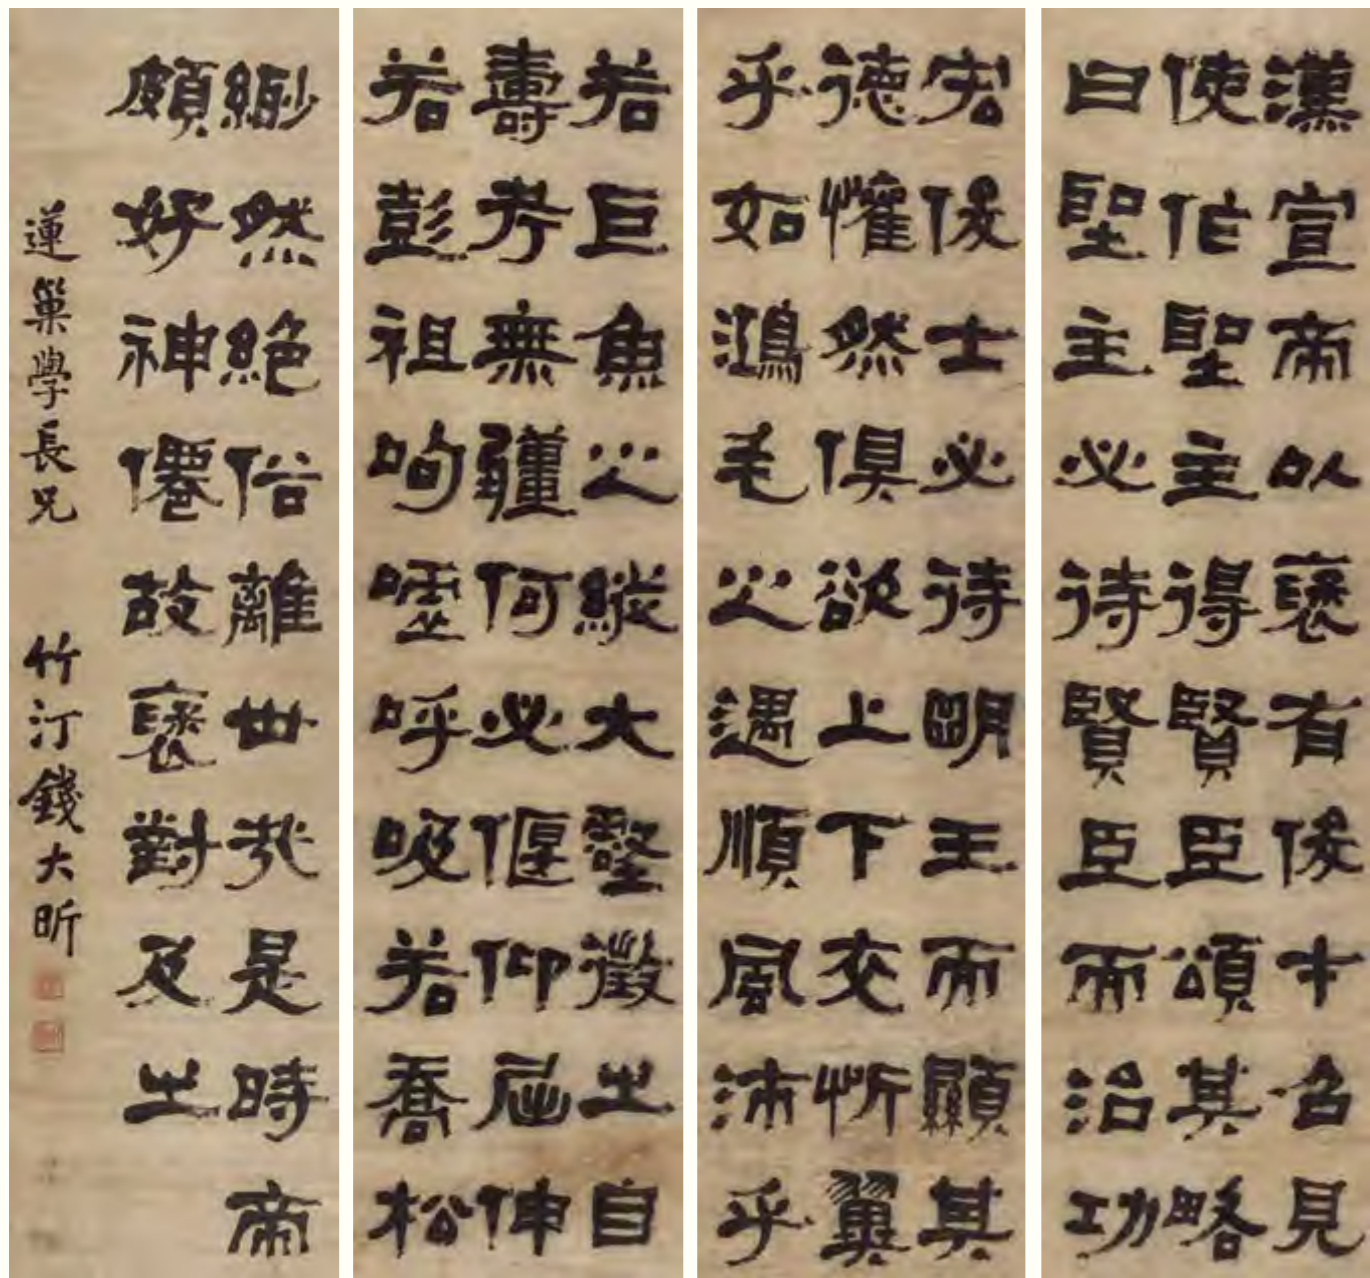 漢宣帝以襃有俊才召見
使作聖主得賢臣頌其略
曰聖主必待賢臣而治功
宏俊士必待明王而顯其
德懽然俱欲上下交忻翼
乎如鴻毛之遇順風沛乎
若巨魚之縱大壑徵㞢自
壽考無疆何必偃仰屈伸
若彭祖呴噓呼吸若喬松
緲然絕俗離世哉是時帝
頗好神僊故襃對及㞢
蓮巢學長兄 竹汀錢大昕